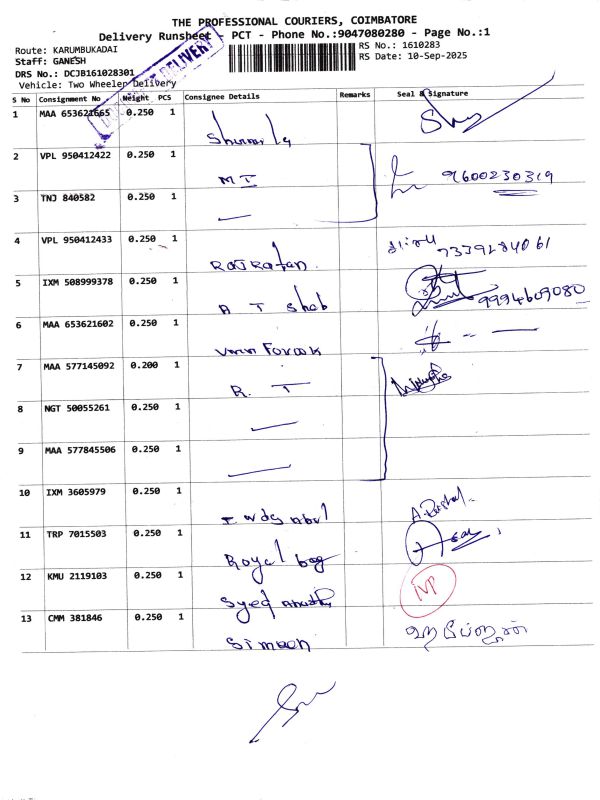 THE PROFESSIONAL COURIERS, COIMBATORE
Delivery Runsheet - PCT - Phone No.:9047080280 - Page No.:1
Route: KARUMBUKADAI
RS No.: 1610283
Staff: GANESH
RS Date: 10-Sep-2025
DRS No.: DCJB161028301
Vehicle: Two Wheeler Delivery
DELIVERY
S No Consignment No Weight PCS Consignee Details Remarks Seal & Signature
1 MAA 653621665 0.250 1
2 VPL 950412422 0.250 1 M I 9600230319
3 TNJ 840582 0.250 1
4 VPL 950412433 0.250 1 RajRatan 7339284061
5 IXM 508999378 0.250 1 A T Shab 9994609080
6 MAA 653621602 0.250 1 Farook
7 MAA 577145092 0.200 1 R. T
8 NGT 50055261 0.250 1
9 MAA 577845506 0.250 1
10 IXM 3605979 0.250 1
11 TRP 7015503 0.250 1 Royal bag
12 KMU 2119103 0.250 1 Syed NP
13 CMM 381846 0.250 1 Simoon